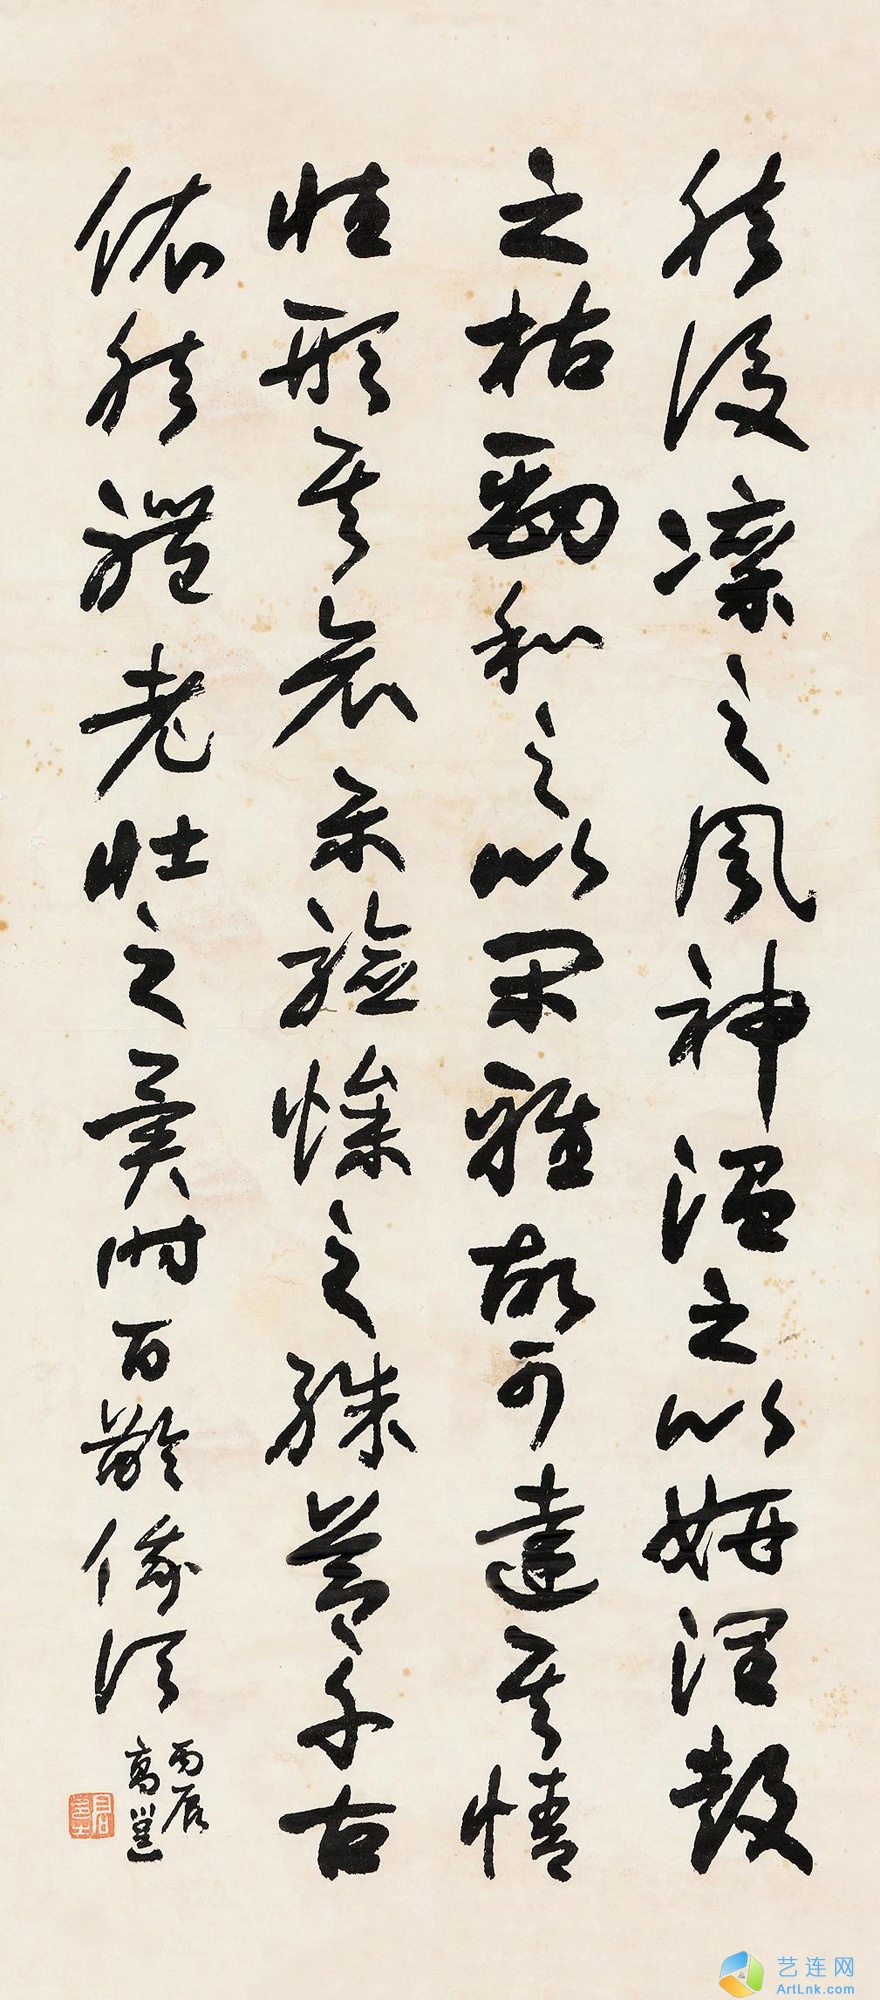 然後凜之風神溫之以妍潤鼓
之枯勁和之以閑雅故可達其情
性形其哀樂驗燥之殊節千古
依然體老壯之異時百齡俄頃
丙辰
高邕
艺连网
ArtLnk.com